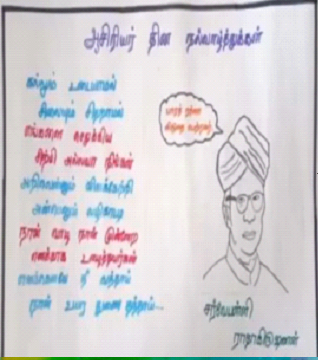 ஆசிரியர் தின நல்வாழ்த்துக்கள்
கல்லும் உடையாமல்
சிலையும் சிதறாமல்
எங்களை செதுக்கிய
சிற்பி அல்லவா நீங்கள்
அறிவெனும் விளக்கேந்தி
அன்பெனும் வழிகாட்டி
நான் வாடி நான்
எனக்காக உழைத்தவர்கள்
நீ வந்தாய்
நான் உயர துணை தந்தாய்...
பாரத ரத்னா
விருதை பெற்றவர்
சர்வேபள்ளி
ராதாகிருஷ்ணன்